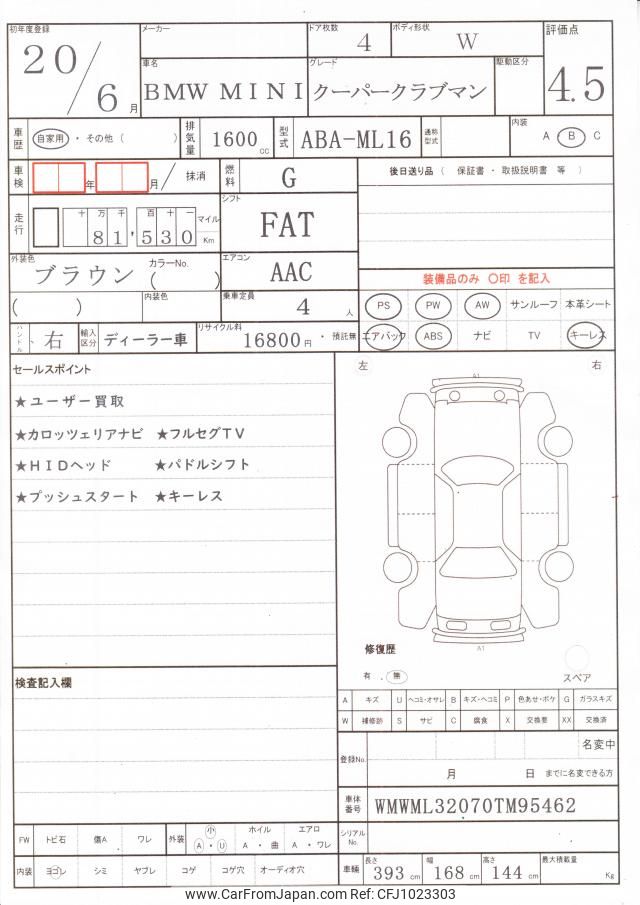 初年度登録 メーカー ドア枚数 ボディ形状 評価点
20/6月 4 W 4.5
車名 グレード 駆動区分
BMW MINI クーパークラブマン
車歴 自家用・その他( ) 排気量 1600cc 型式 ABA-ML16 通称型式 内装 A B C
車検 年 月/ 抹消 燃料 G 後日送り品( 保証書・取扱説明書 等 )
走行 十万千百十一 81,530 マイル Km シフト FAT
外装色 カラーNo. エアコン
ブラウン ( ) AAC 装備品のみ 〇印 を記入
( ) 内装色 乗車定員 4人 PS PW AW サンルーフ 本革シート
ハンドル 右 輸入区分 ディーラー車 リサイクル料 16800円・預託無 エアバック ABS ナビ TV キーレス
セールスポイント 左 右
A1
★ユーザー買取
★カロッツェリアナビ ★フルセグTV
★HIDヘッド ★パドルシフト
★プッシュスタート ★キーレス
A1
修復歴
有 . 無 スペア
検査記入欄
A キズ U ヘコミ・オサレ B キズ・ヘコミ P 色あせ・ボケ G ガラスキズ
W 補修跡 S サビ C 腐食 X 交換要 XX 交換済
登録No. 名変中
月 日 までに名変できる方
車体番号 WMWML32070TM95462
FW トビ石 傷A ワレ 外装 小 A・U ホイル A・曲 エアロ A・ワレ シリアルNo.
内装 ヨゴレ シミ ヤブレ コゲ コゲ穴 オーディオ穴 車輌 長さ 393cm 幅 168cm 高さ 144cm 最大積載量 Kg
www.CarFromJapan.com Ref: CFJ1023303